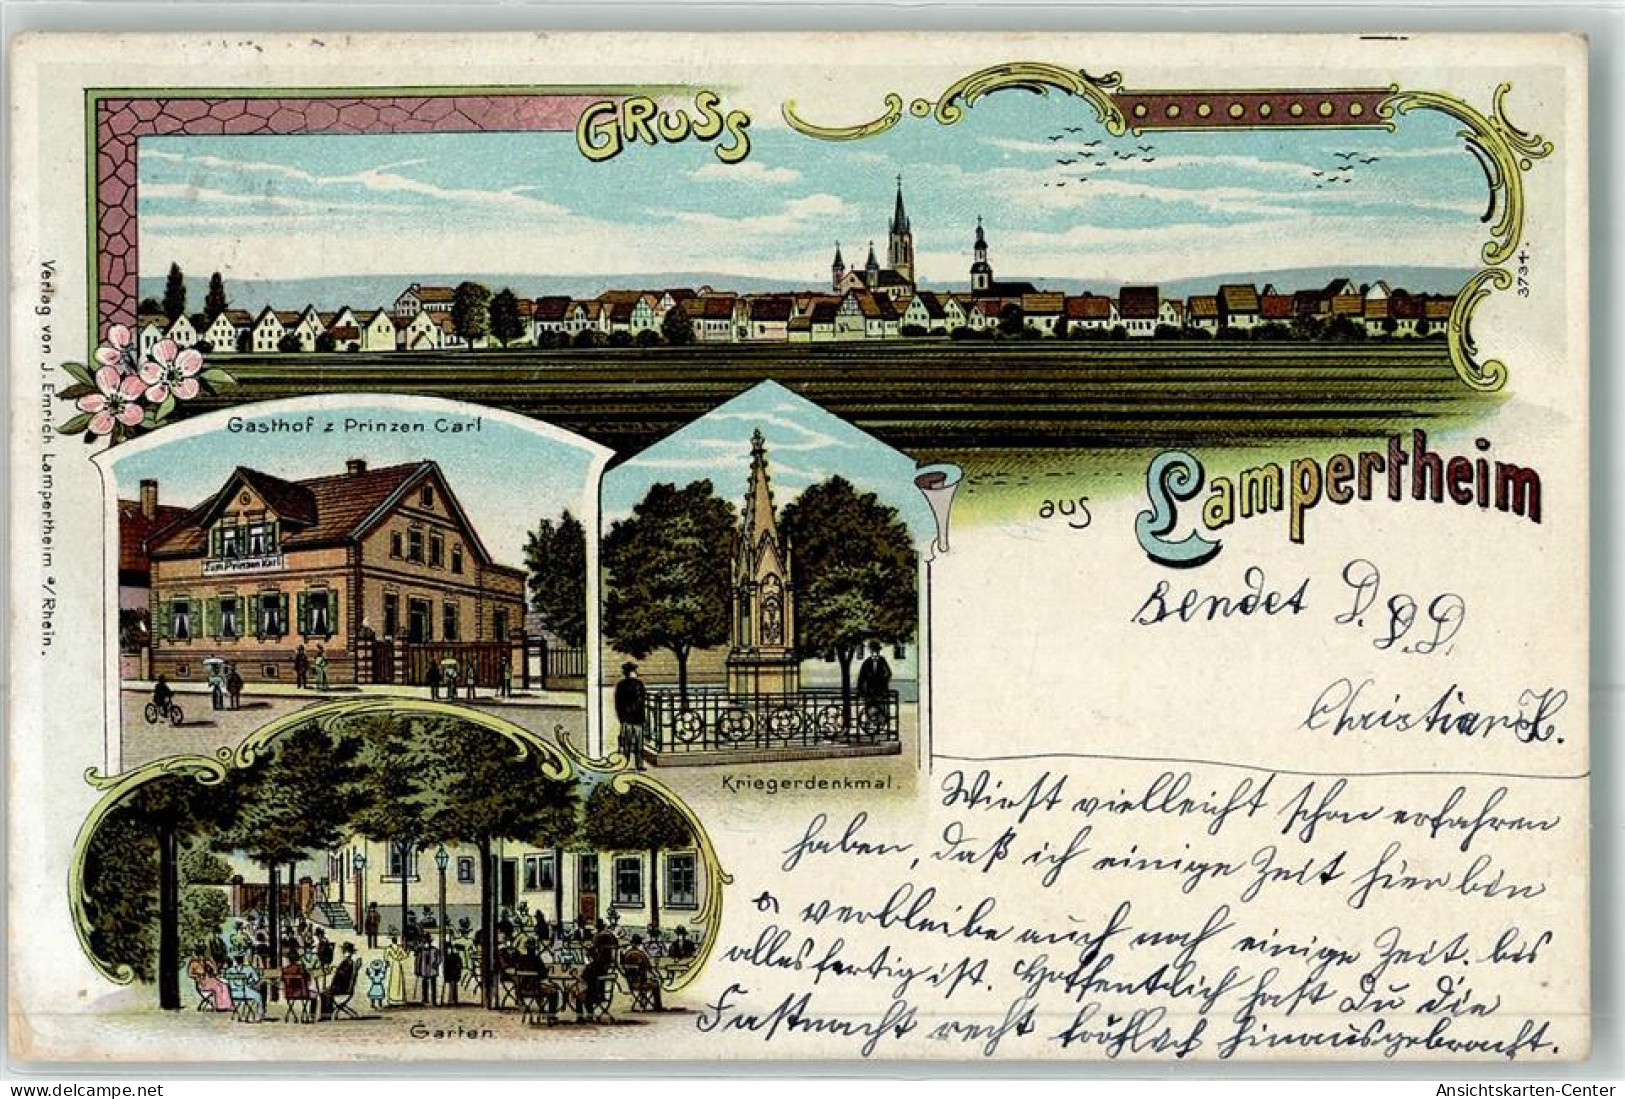 GRUSS
3734.
Verlag von J. Emrich Lampertheim a/Rhein.
Gasthof z Prinzen Carl
Zum Prinzen Karl
aus Lampertheim
sendet D.
D.D.
Christian H.
Kriegerdenkmal.
Wirst vielleicht schon erfahren
haben, daß ich einige Zeit hier bin
& verbleibe auch noch einige Zeit. bis
alles fertig ist. Hoffentlich hast Du die
Fastnacht recht fröhlich hinausgebracht.
Garten
www.ak-ansichtskarten.de
Ansichtskarten-Center